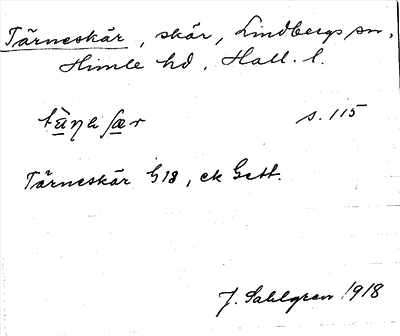 Tärneskär, skär, Lindbergs sn,
Himle hd, Hall. l.
s. 115
Tärneskär G18, ek Gett.
J. Sahlgren 1918